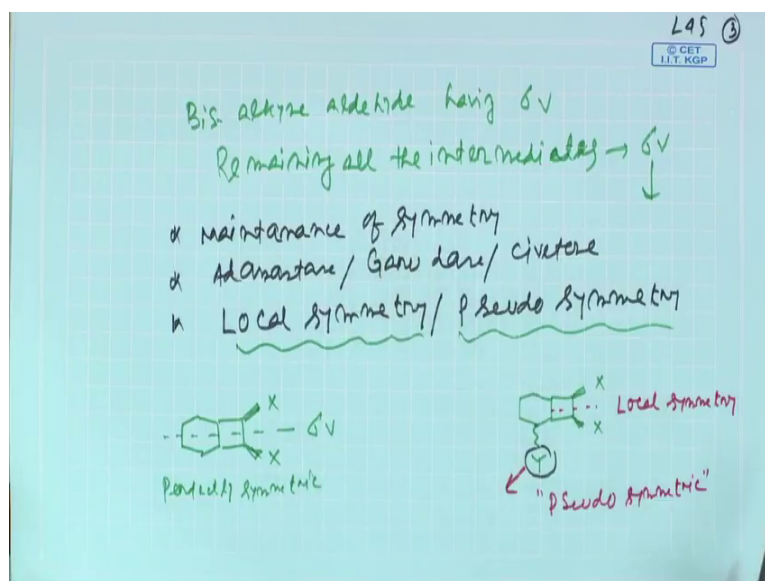 L45 ③
© CET
I.I.T. KGP
Bis. alkyne aldehide having σv
Remaining all the intermediates → σv
* Maintanance of symmetry
* Adamantane / Garudane / Civetone
* Local symmetry / Pseudo symmetry
X
σv
X
Perfectly symmetric
X
Local symmetry
X
Y
"Pseudo symmetric"